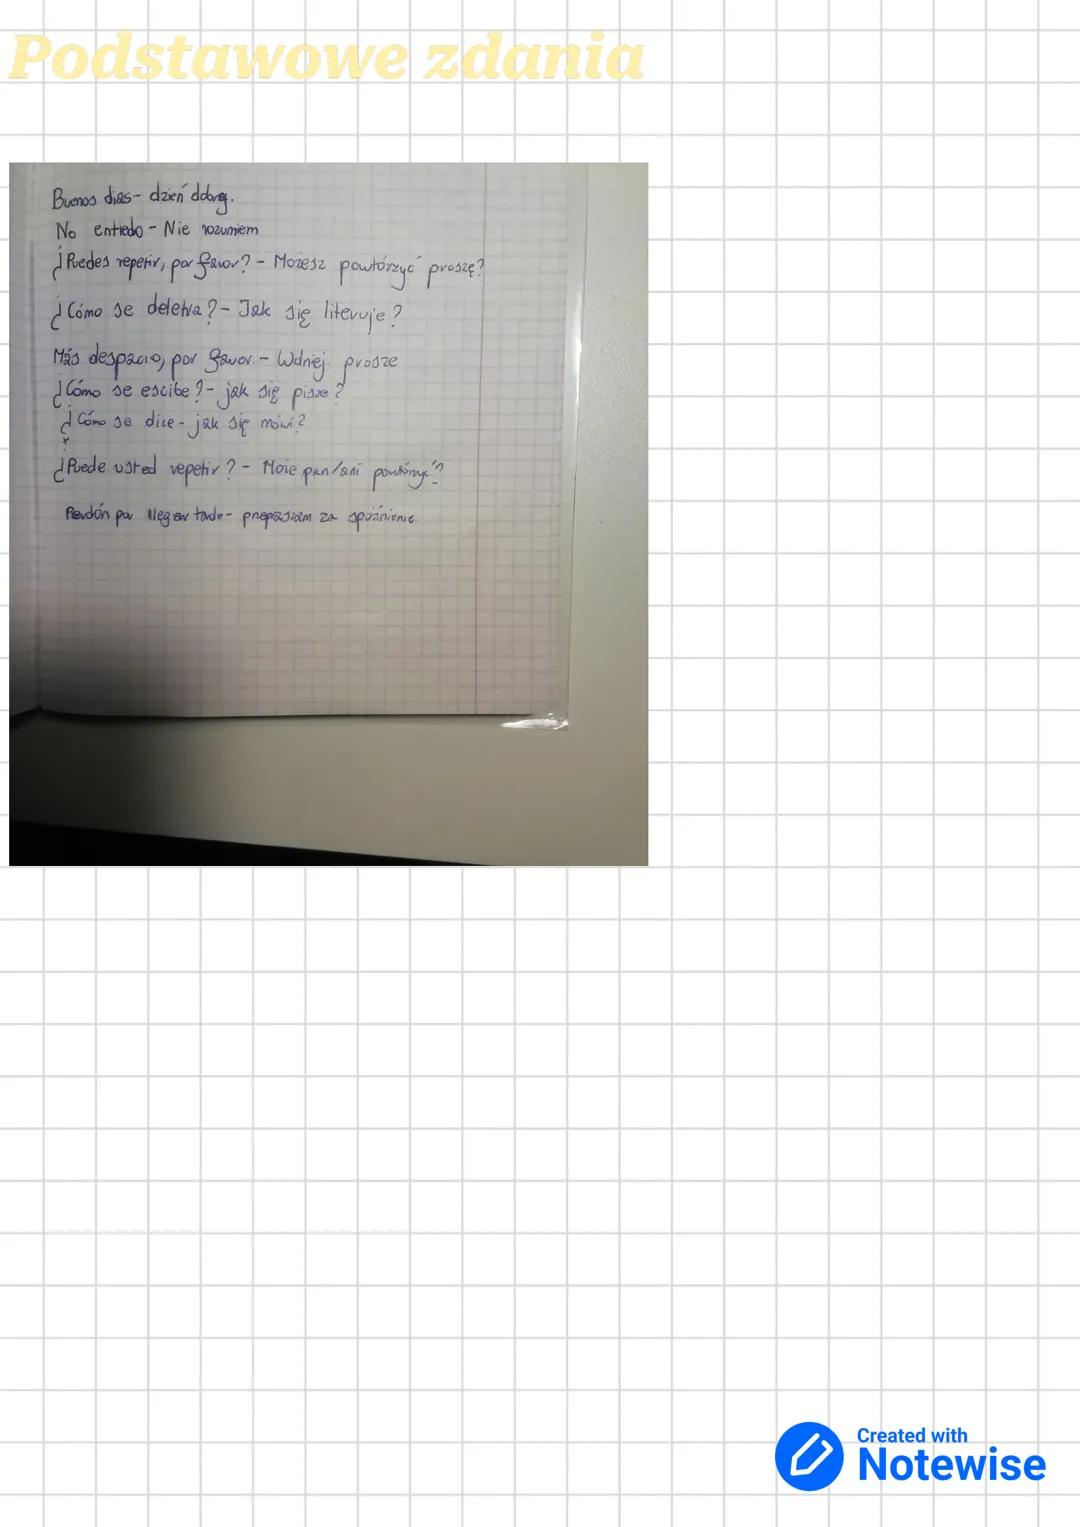 Podstawowe zdania
Buenos dias - dzień dobry.
No entiedo - Nie rozumiem
¿Puedes repetir, por favor? - Możesz powtórzyć proszę?
¿Cómo se deletra? - Jak się literuje?
Más despacio, por favor. - Wolniej prosze
¿Cómo se escibe? - jak się pisze?
¿Cómo se dice - jak się mówi?
¿Puede usted repetir? - Może pan/ani powtórzyć?
Perdón por llegar tarde - przepraszam za spóźnienie
Created with
Notewise